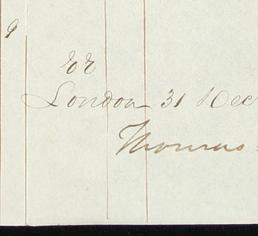 9
EE
London 31 Dec
Thomas